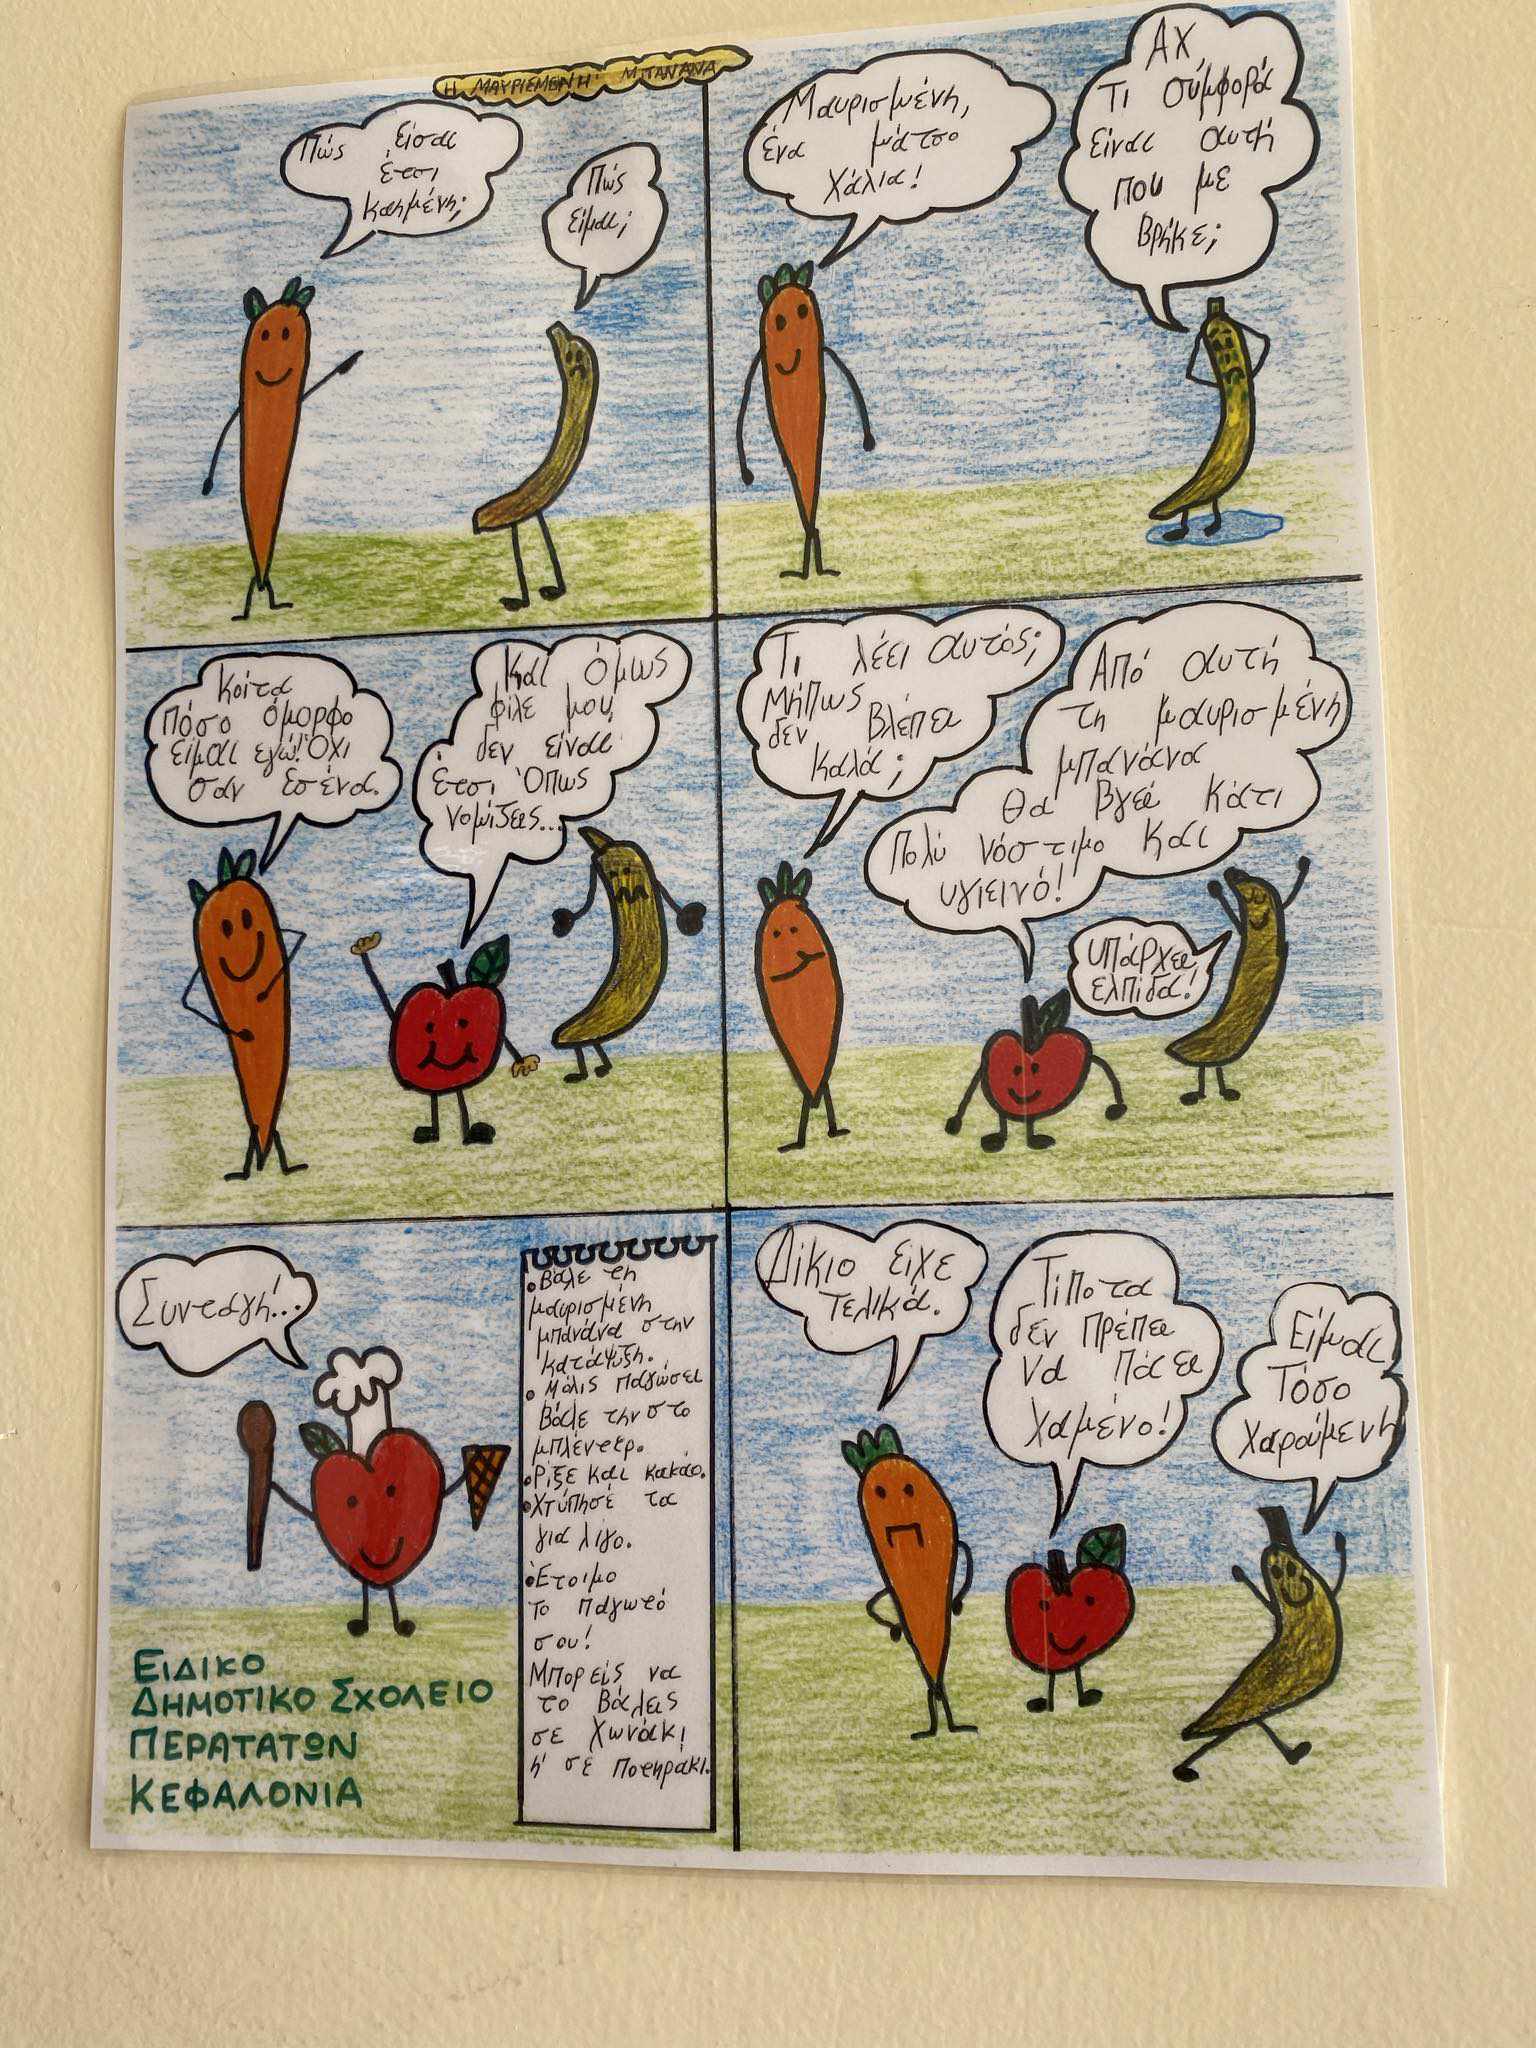 Η ΜΑΥΡΙΣΜΕΝΗ ΜΠΑΝΑΝΑ
Πώς είσαι
έτσι
καημένη;
Πώς
είμαι;
Μαυρισμένη,
ένα μάτσο
χάλια!
Αχ
Τι σύμφορά
είναι αυτή
που με
βρήκε;
Κοίτα
πόσο όμορφο
είμαι εγώ! Όχι
σαν εσένα.
Και όμως
φίλε μου,
δεν είναι
έτσι όπως
νομίζεις...
Τι λέει αυτός;
Μήπως
δεν βλέπει
καλά;
Από αυτή
τη μαυρισμένη
μπανάνα
θα βγει κάτι
πολύ νόστιμο και
υγιεινό!
Υπάρχει
ελπίδα!
Συνταγή!..
• Βάλε τη
μαυρισμένη
μπανάνα στην
κατάψυξη.
• Μόλις παγώσει
βάλε την στο
μπλέντερ.
• Ρίξε και κακάο.
• Χτύπησέ τα
για λίγο.
• Έτοιμο
το παγωτό
σου!
Μπορείς να
το βάλεις
σε χωνάκι
ή σε ποτηράκι.
ΕΙΔΙΚΟ
ΔΗΜΟΤΙΚΟ ΣΧΟΛΕΙΟ
ΠΕΡΑΤΑΤΩΝ
ΚΕΦΑΛΟΝΙΑ
Δίκιο είχε
τελικά.
Τίποτα
δεν πρέπει
να πάει
χαμένο!
Είμαι
Τόσο
χαρούμενη